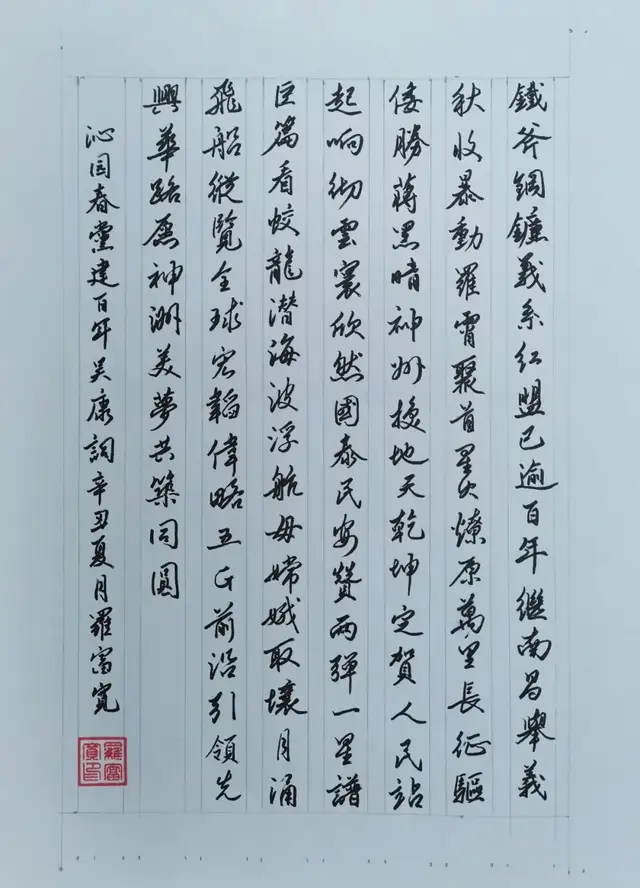 鐵斧鋼鐮義系红盟已逾百年繼南昌舉義
秋收暴動羅霄聚首星火燎原萬里長征驅
倭勝蔣黑暗神州換地天乾坤定賀人民站
起响彻雲寰欣然國泰民安贊两弹一星譜
巨篇看蛟龍潜海波浮航母嫦娥取壤月涌
飛船縱覽全球宏韜偉略五G前沿引領先
興華路愿神洲美夢共築同圓
沁园春黨建百年吴康詞辛丑夏月羅富寬
羅富